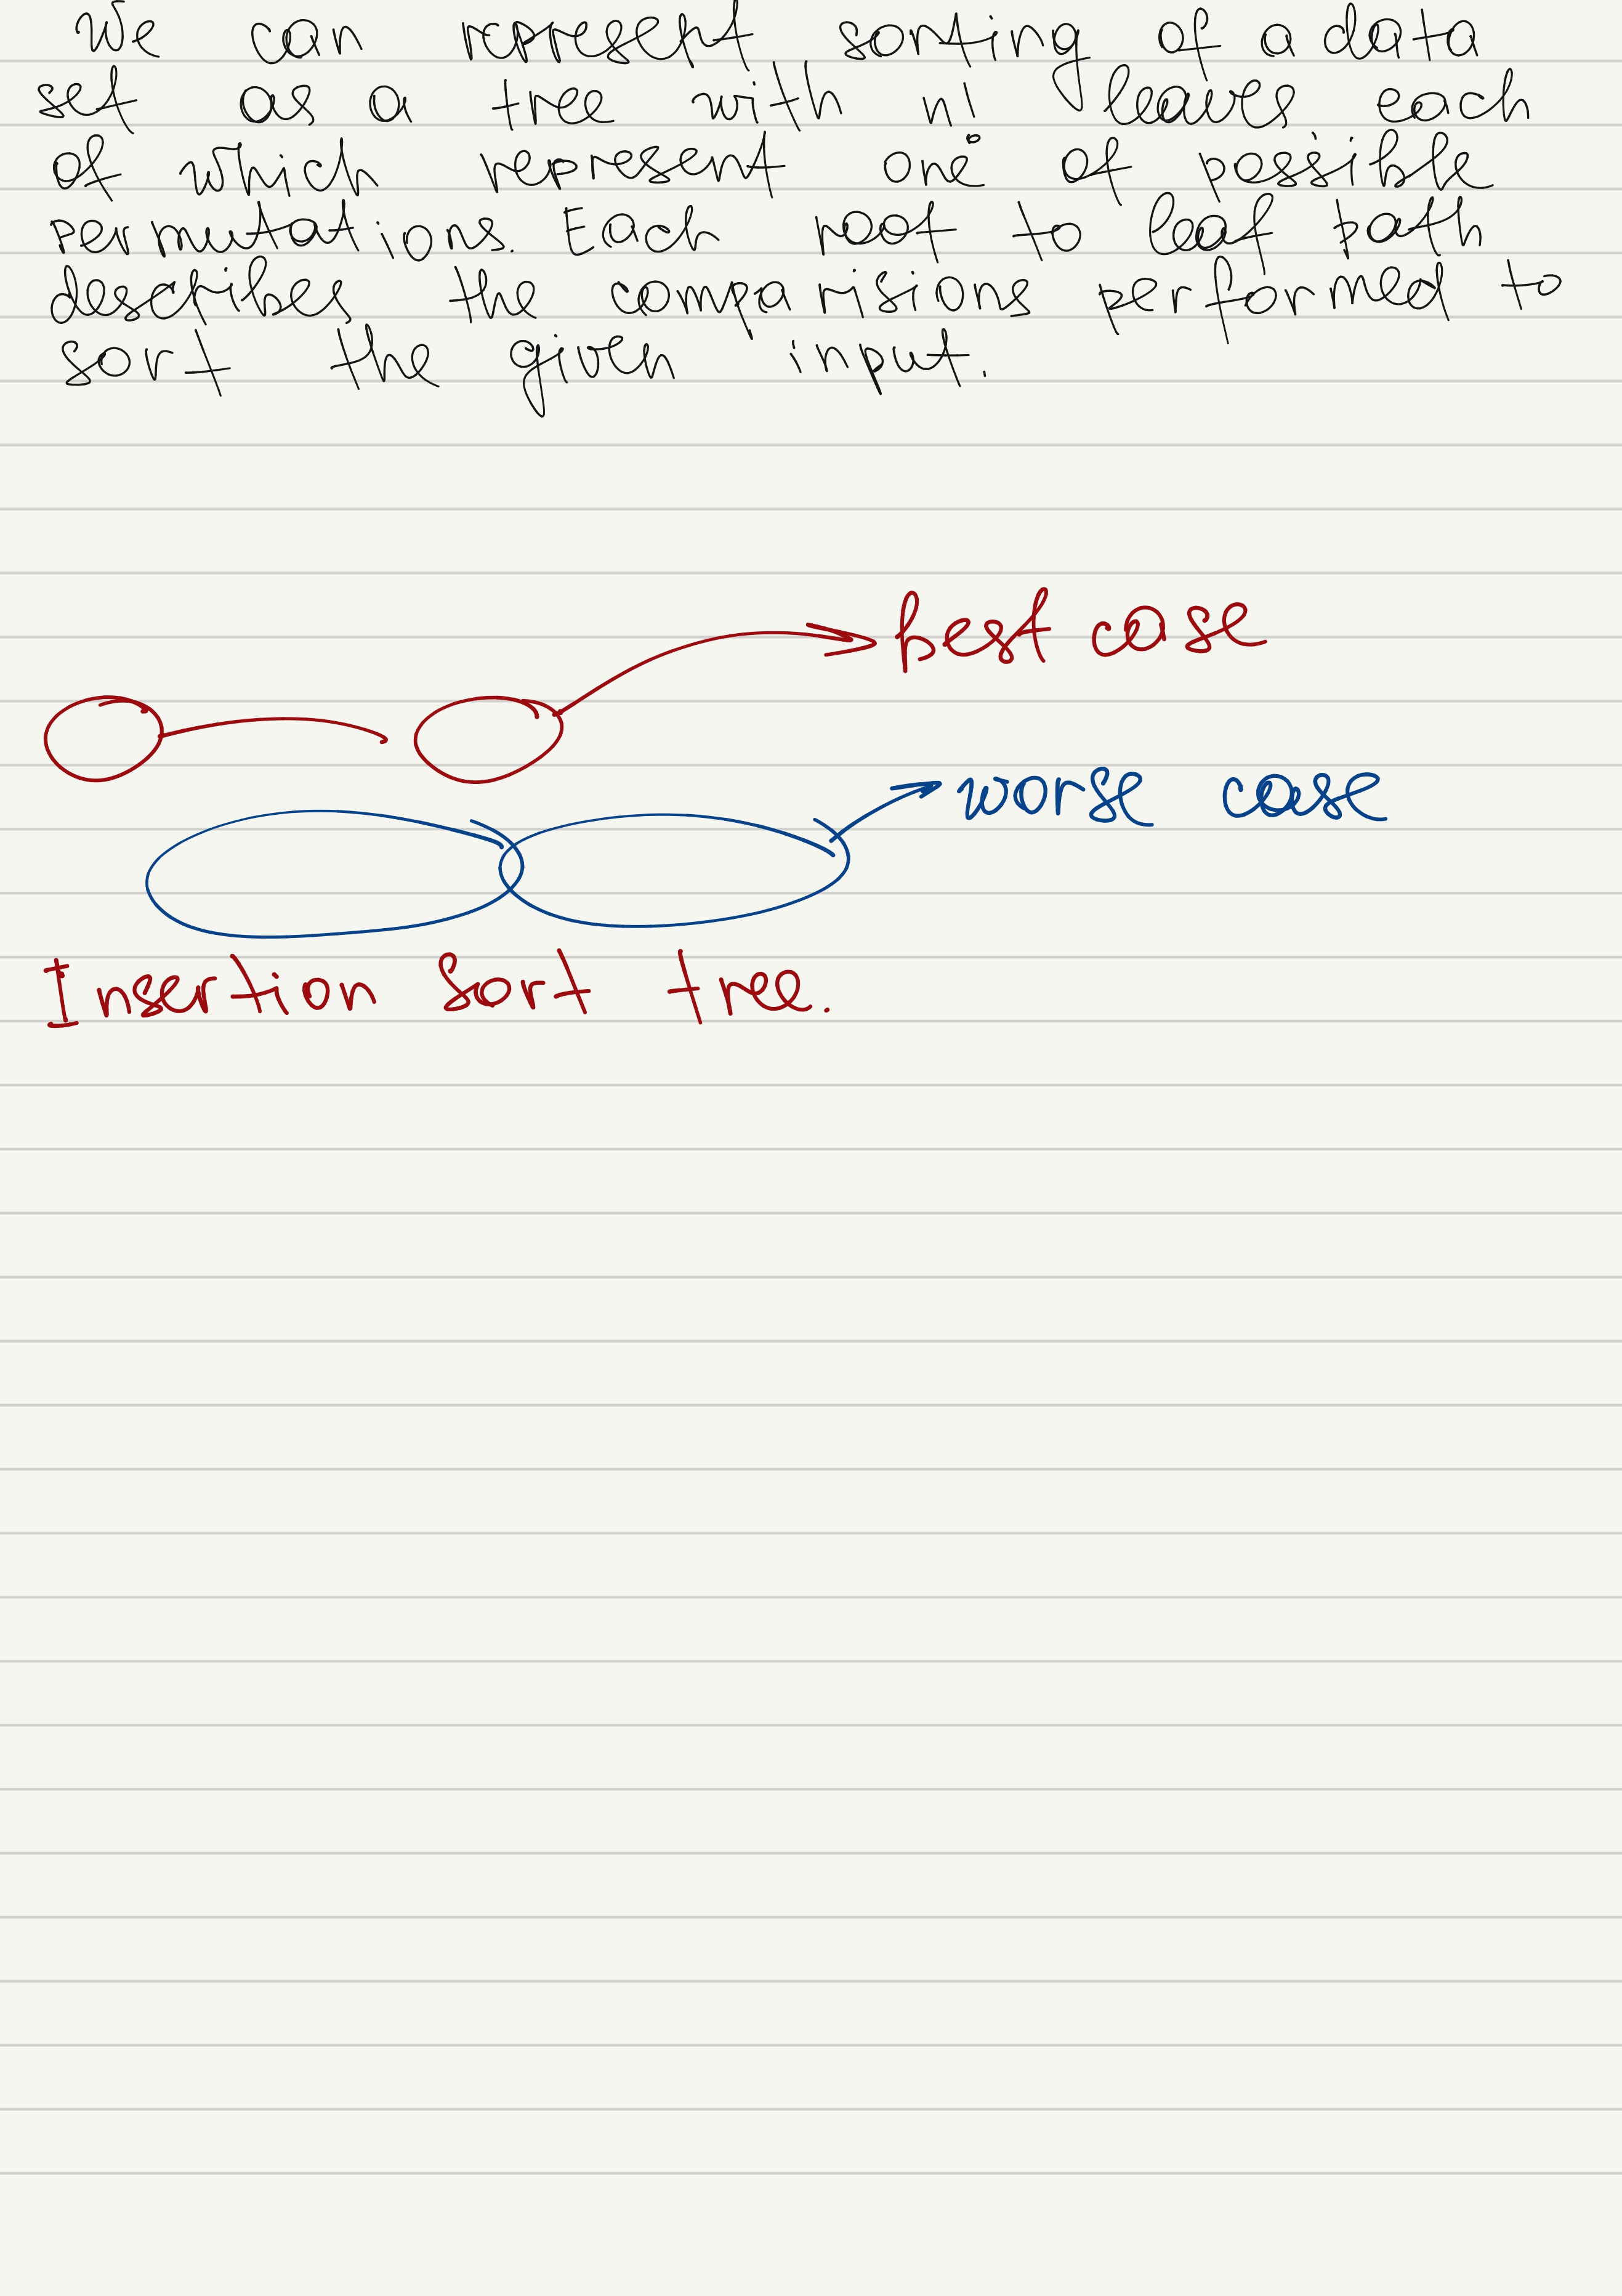 We can represent sorting of a data
set as a tree with n! leaves each
of which represent one of possible
permutations. Each root to leaf path
describes the comparisions performed to
sort the given input.
best case
worse case
Insertion Sort tree.